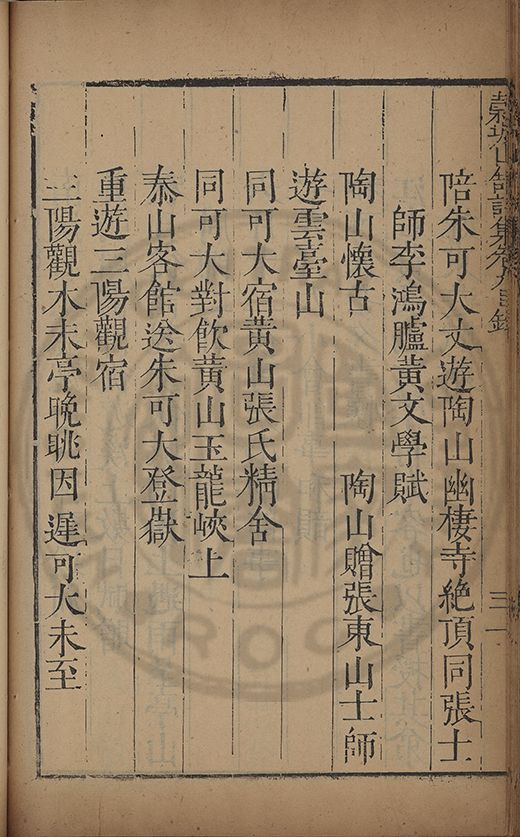 穀城山館詩集卷八目錄
三
陪朱可大丈遊陶山幽棲寺絕頂同張士
師李鴻臚黃文學賦
陶山懷古　陶山贈張東山士師
遊雲臺山
同可大宿黃山張氏精舍
同可大對飲黃山玉龍峽上
泰山客館送朱可大登嶽
重遊三陽觀宿
三陽觀木末亭晚眺因遲可大未至